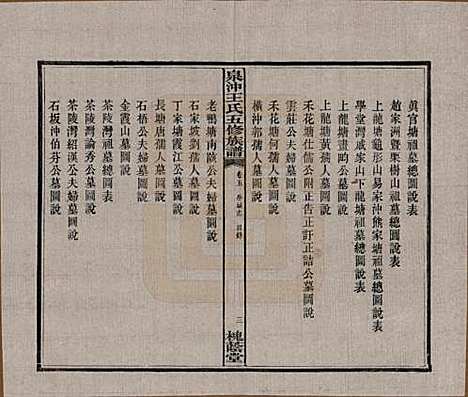 真官塘祖墓總圖說表
趙家洲暨栗樹山祖墓總圖說表
上龍塘龜形山易家沖熊家塘祖墓總圖說表
學堂灣戚家山下龍塘祖墓總圖說表
上龍塘畫昀公墓圖說
禾花塘仕儒公附正告正訂正誥公墓圖說
雲莊公夫婦墓圖說
上龍塘黃孺人墓圖說
禾花塘何孺人墓圖說
橫沖郭孺人墓圖說
泉沖王氏五修族譜
卷五
目錄
三
槐蔭堂
老鴨塘南陔公夫婦墓圖說
石家坡劉孺人墓圖說
長塘唐孺人墓圖說
丁家塘霞江公墓圖說
石梧公夫婦墓圖說
金霞山墓圖說
茶陵灣祖墓總圖說表
茶陵灣論秀公墓圖說
茶陵灣紹漢公夫婦墓圖說
石坂沖伯芬公墓圖說